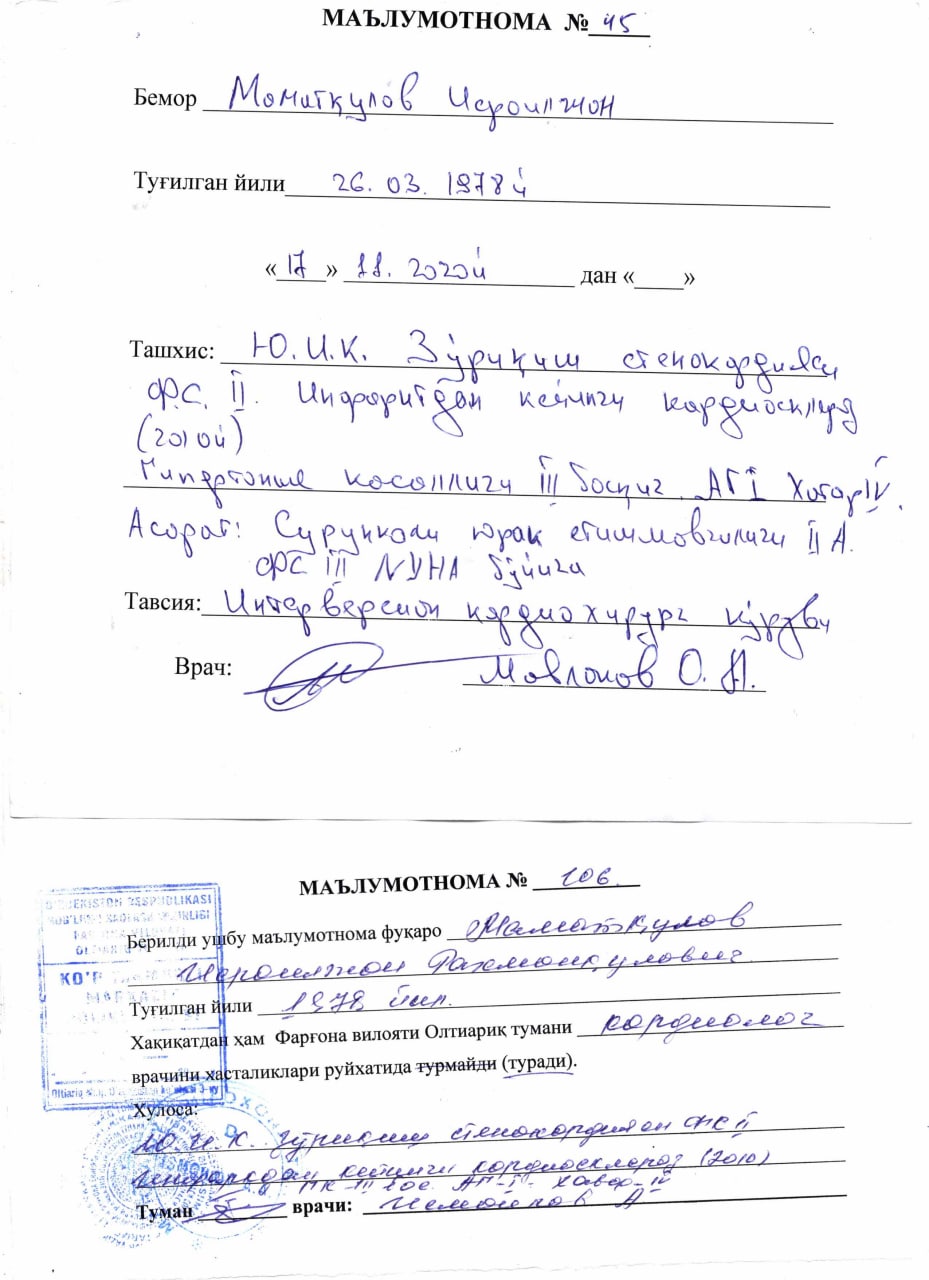 МАЪЛУМОТНОМА № 45
Бемор Маматқулов Исроилжон
Туғилган йили 26. 03. 1978 й
« 17 » 11. 2020й дан « »
Ташхис: Ю.И.К. Зўриқиш стенокардияси
ФС. II. Инфарктдан кейинги кардиосклероз
(2010й)
Гипертония касаллиги III босқич. АГ I Хатар IV.
Асорат: Сурункали юрак етишмовчилиги II А.
ФС III NYHA бўйича
Тавсия: Интервенсион кардиохирург кўруви
Врач: Мавлонов О. А.
МАЪЛУМОТНОМА № 106.
O'ZBEKISTON RESPUBLIKASI
SOG'LIQNI SAQLASH VAZIRLIGI
Берилди ушбу маълумотнома фуқаро Маматқулов
KO'P
Исроилжон Рахмонқулович
MARKAZI
Туғилган йили 1978 йил.
Хақиқатдан ҳам Фарғона вилояти Олтиариқ тумани кардиолог
врачини хасталиклари руйхатида турмайди (туради).
Хулоса:
Ю.И.К. Зўриқиш стенокардияси ФС II
Инфаркдан кейинги кардиосклероз (2010)
ГК III бос. АГ-I- хавф-IV
Туман врачи: